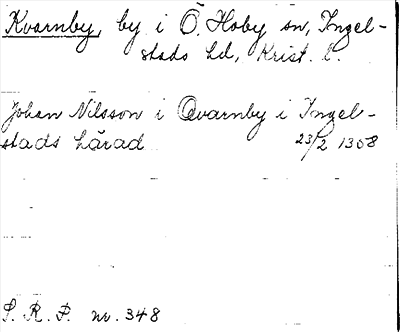 Kvarnby, by i Ö. Hoby sn, Ingel-
stads hd, Krist. l.
Johan Nilsson i Qvarnby i Ingel-
stads härad 23/2 1308
S. R. P. nr. 348